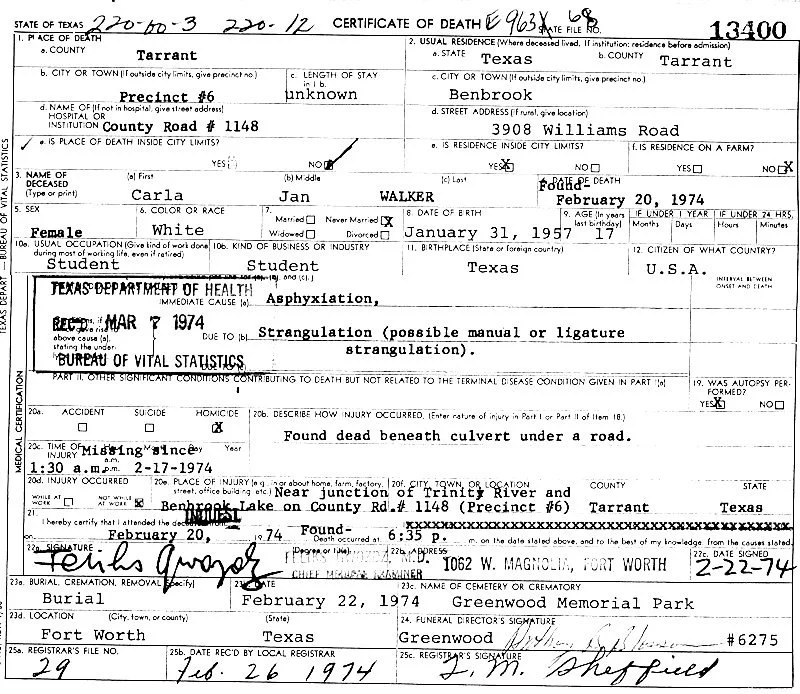 STATE OF TEXAS 220-60-3 220-12 CERTIFICATE OF DEATH STATE FILE NO. 13400
1. PLACE OF DEATH
a. COUNTY
Tarrant
2. USUAL RESIDENCE (Where deceased lived. If institution: residence before admission)
a. STATE Texas b. COUNTY Tarrant
b. CITY OR TOWN (If outside city limits, give precinct no.)
Precinct #6
c. LENGTH OF STAY
in 1 b.
unknown
c. CITY OR TOWN (If outside city limits, give precinct no.)
Benbrook
d. NAME OF (If not in hospital, give street address)
HOSPITAL OR
INSTITUTION County Road # 1148
d. STREET ADDRESS (If rural, give location)
3908 Williams Road
e. IS PLACE OF DEATH INSIDE CITY LIMITS?
YES NO
e. IS RESIDENCE INSIDE CITY LIMITS?
YES X NO
f. IS RESIDENCE ON A FARM?
YES NO X
3. NAME OF
DECEASED
(Type or print)
(a) First
Carla
(b) Middle
Jan
(c) Last
WALKER
4. DATE OF DEATH
Found-
February 20, 1974
5. SEX
Female
6. COLOR OR RACE
White
7.
Married Never Married X
Widowed Divorced
8. DATE OF BIRTH
January 31, 1957
9. AGE (In years
last birthday)
17
IF UNDER 1 YEAR
Months Days
IF UNDER 24 HRS.
Hours Minutes
10a. USUAL OCCUPATION (Give kind of work done
during most of working life, even if retired)
Student
10b. KIND OF BUSINESS OR INDUSTRY
Student
11. BIRTHPLACE (State or foreign country)
Texas
12. CITIZEN OF WHAT COUNTRY?
U.S.A.
INTERVAL BETWEEN
ONSET AND DEATH
TEXAS DEPARTMENT OF HEALTH
REC'D MAR 7 1974
BUREAU OF VITAL STATISTICS
IMMEDIATE CAUSE (a) Asphyxiation,
above cause (a),
stating the under-
DUE TO (b) Strangulation (possible manual or ligature
strangulation).
PART II. OTHER SIGNIFICANT CONDITIONS CONTRIBUTING TO DEATH BUT NOT RELATED TO THE TERMINAL DISEASE CONDITION GIVEN IN PART I(a)
19. WAS AUTOPSY PER-
FORMED?
YES X NO
MEDICAL CERTIFICATION
20a. ACCIDENT SUICIDE HOMICIDE
X
20b. DESCRIBE HOW INJURY OCCURRED. (Enter nature of injury in Part I or Part II of Item 18.)
Found dead beneath culvert under a road.
20c. TIME OF
INJURY Missing since Year
1:30 a.m. p.m. 2-17-1974
20d. INJURY OCCURRED
WHILE AT
WORK
NOT WHILE
AT WORK X
20e. PLACE OF INJURY (e.g. in or about home, farm, factory,
street, office building, etc.)
20f. CITY, TOWN, OR LOCATION COUNTY STATE
Near junction of Trinity River and
Benbrook Lake on County Rd.# 1148 (Precinct #6) Tarrant Texas
21.
I hereby certify that I attended the deceased INQUEST
on February 20, 1974 Found-
Death occurred at 6:35 p. m. on the date stated above, and to the best of my knowledge, from the causes stated.
22a. SIGNATURE
Feliks Gwozdz
(Degree or title)
FELIKS GWOZDZ, M.D.
CHIEF MEDICAL EXAMINER
22b. ADDRESS
1062 W. MAGNOLIA, FORT WORTH
22c. DATE SIGNED
2-22-74
23a. BURIAL, CREMATION, REMOVAL (Specify)
Burial
23b. DATE
February 22, 1974
23c. NAME OF CEMETERY OR CREMATORY
Greenwood Memorial Park
23d. LOCATION (City, town, or county) (State)
Fort Worth Texas
24. FUNERAL DIRECTOR'S SIGNATURE
Greenwood #6275
25a. REGISTRAR'S FILE NO.
29
25b. DATE REC'D BY LOCAL REGISTRAR
Feb. 26 1974
25c. REGISTRAR'S SIGNATURE
L.M. Sheffield